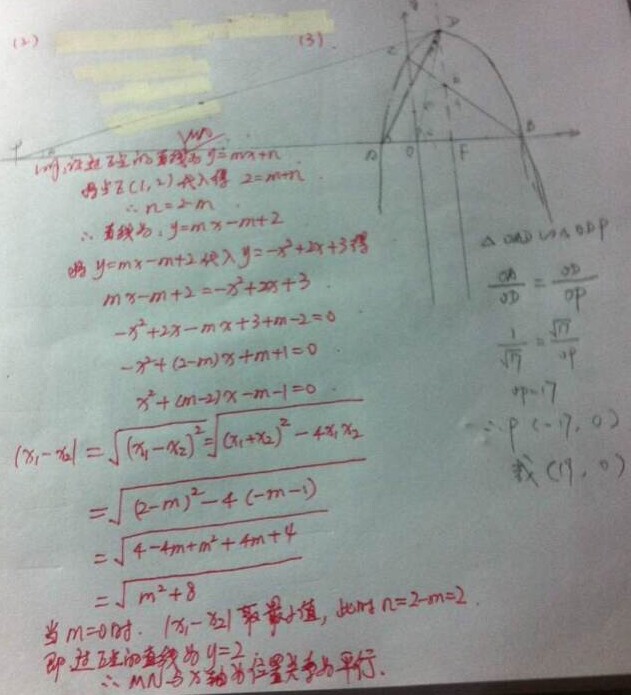 (2)
(3).
y
D
C
E
P
A
O
F
B
MN
设过E点的直线为y=mx+n
将点E(1,2)代入得 2=m+n
∴n=2-m
∴直线为:y=mx-m+2
将y=mx-m+2代入y=-x²+2x+3得
mx-m+2=-x²+2x+3
-x²+2x-mx+3+m-2=0
-x²+(2-m)x+m+1=0
x²+(m-2)x-m-1=0
|x₁-x₂|=√(x₁-x₂)²=√(x₁+x₂)²-4x₁x₂
=√(2-m)²-4(-m-1)
=√4-4m+m²+4m+4
=√m²+8
当m=0时.|x₁-x₂|取最小值,此时n=2-m=2.
即过E点的直线为y=2
∴MN与x轴的位置关系为平行.
△OAD∽△ODP
OA/OD=OD/OP
1/√17=√17/OP
OP=17
∴P(-17,0)
或(17,0)